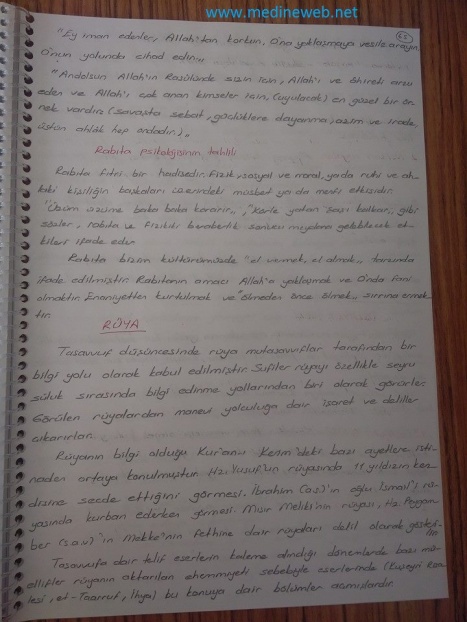 www.medineweb.net
65
"Ey iman edenler, Allah'tan korkun, O'na yaklaşmaya vesile arayın,
O'nun yolunda cihad edin,,
"Andolsun Allah'ın Rasülünde sizin için, Allah'ı ve ahireti arzu
eden ve Allah'ı çok anan kimseler için, (uyulacak) en güzel bir ör-
nek vardır. (savaşta sebat, güçlüklere dayanma, azim ve irade,
üstün ahlâk hep ondadır.),,
Rabıta psikolojisinin tahlili
Rabıta fıtri bir hadisedir. Fizik, sosyal ve moral, ya da ruhi ve ah-
laki kişiliğin başkaları üzerindeki müsbet ya da menfi etkisidir.
"Üzüm üzüme baka baka kararır,, "Körle yatan şaşı kalkar,, gibi
sözler, rabıta ve fiziki beraberlik sonucu meydana gelebilecek et-
kileri ifade eder.
Rabıta bizim kültürümüzde "el vermek, el almak,, tarzında
ifade edilmiştir. Rabıtanın amacı Allah'a yaklaşmak ve O'nda fani
olmaktır. Enaniyetten kurtulmak ve "ölmeden önce ölmek,, sırrına ermek-
tir.
RÜYA
Tasavvuf düşüncesinde rüya mutasavvıflar tarafından bir
bilgi yolu olarak kabul edilmiştir. Sufiler rüyayı özellikle seyru
sülük sırasında bilgi edinme yollarından biri olarak görürler.
Görülen rüyalardan manevi yolculuğa dair işaret ve deliller
çıkarırlar.
Rüyanın bilgi olduğu Kur'an-ı Kerim'deki bazı ayetlere isti-
naden ortaya konulmuştur. Hz. Yusuf'un rüyasında 11 yıldızın ken-
disine secde ettiğini görmesi. İbrahim (a.s)'ın oğlu İsmail'i rü-
yasında kurban ederken görmesi. Mısır Meliki'nin rüyası, Hz. Peygam-
ber (s.a.v)'in Mekke'nin fethine dair rüyaları delil olarak gösteri-
lir.
Tasavvufa dair telif eserlerin kaleme alındığı dönemlerde bazı mü-
ellifler rüyanın aktarılan ehemmiyeti sebebiyle eserlerinde (Kuşeyri Risa-
lesi, et-Taarruf, İhya) bu konuya dair bölümler açmışlardır.